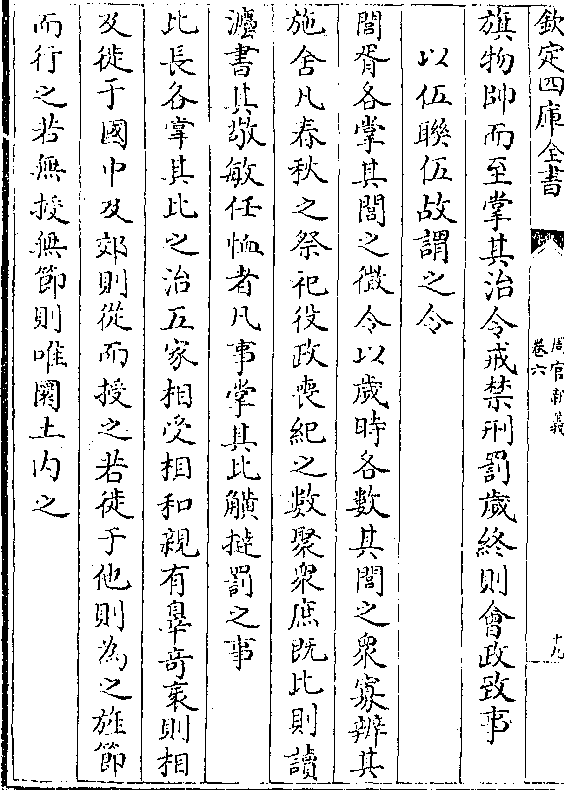 欽定四庫全書
周官新義
卷六
十九
旗物帥而至掌其治令戒禁刑罰歲終則會政致事
以伍聯伍故謂之令
閭胥各掌其閭之徵令以歲時各數其閭之衆寡辨其
施舍凡春秋之祭祀役政喪紀之數聚衆庶既比則讀
灋書其敬敏任恤者凡事掌其比觵撻罰之事
比長各掌其比之治五家相受相和親有辠竒衺則相
及徙于國中及郊則從而授之若徙于他則為之旌節
而行之若無授無節則唯圜土内之